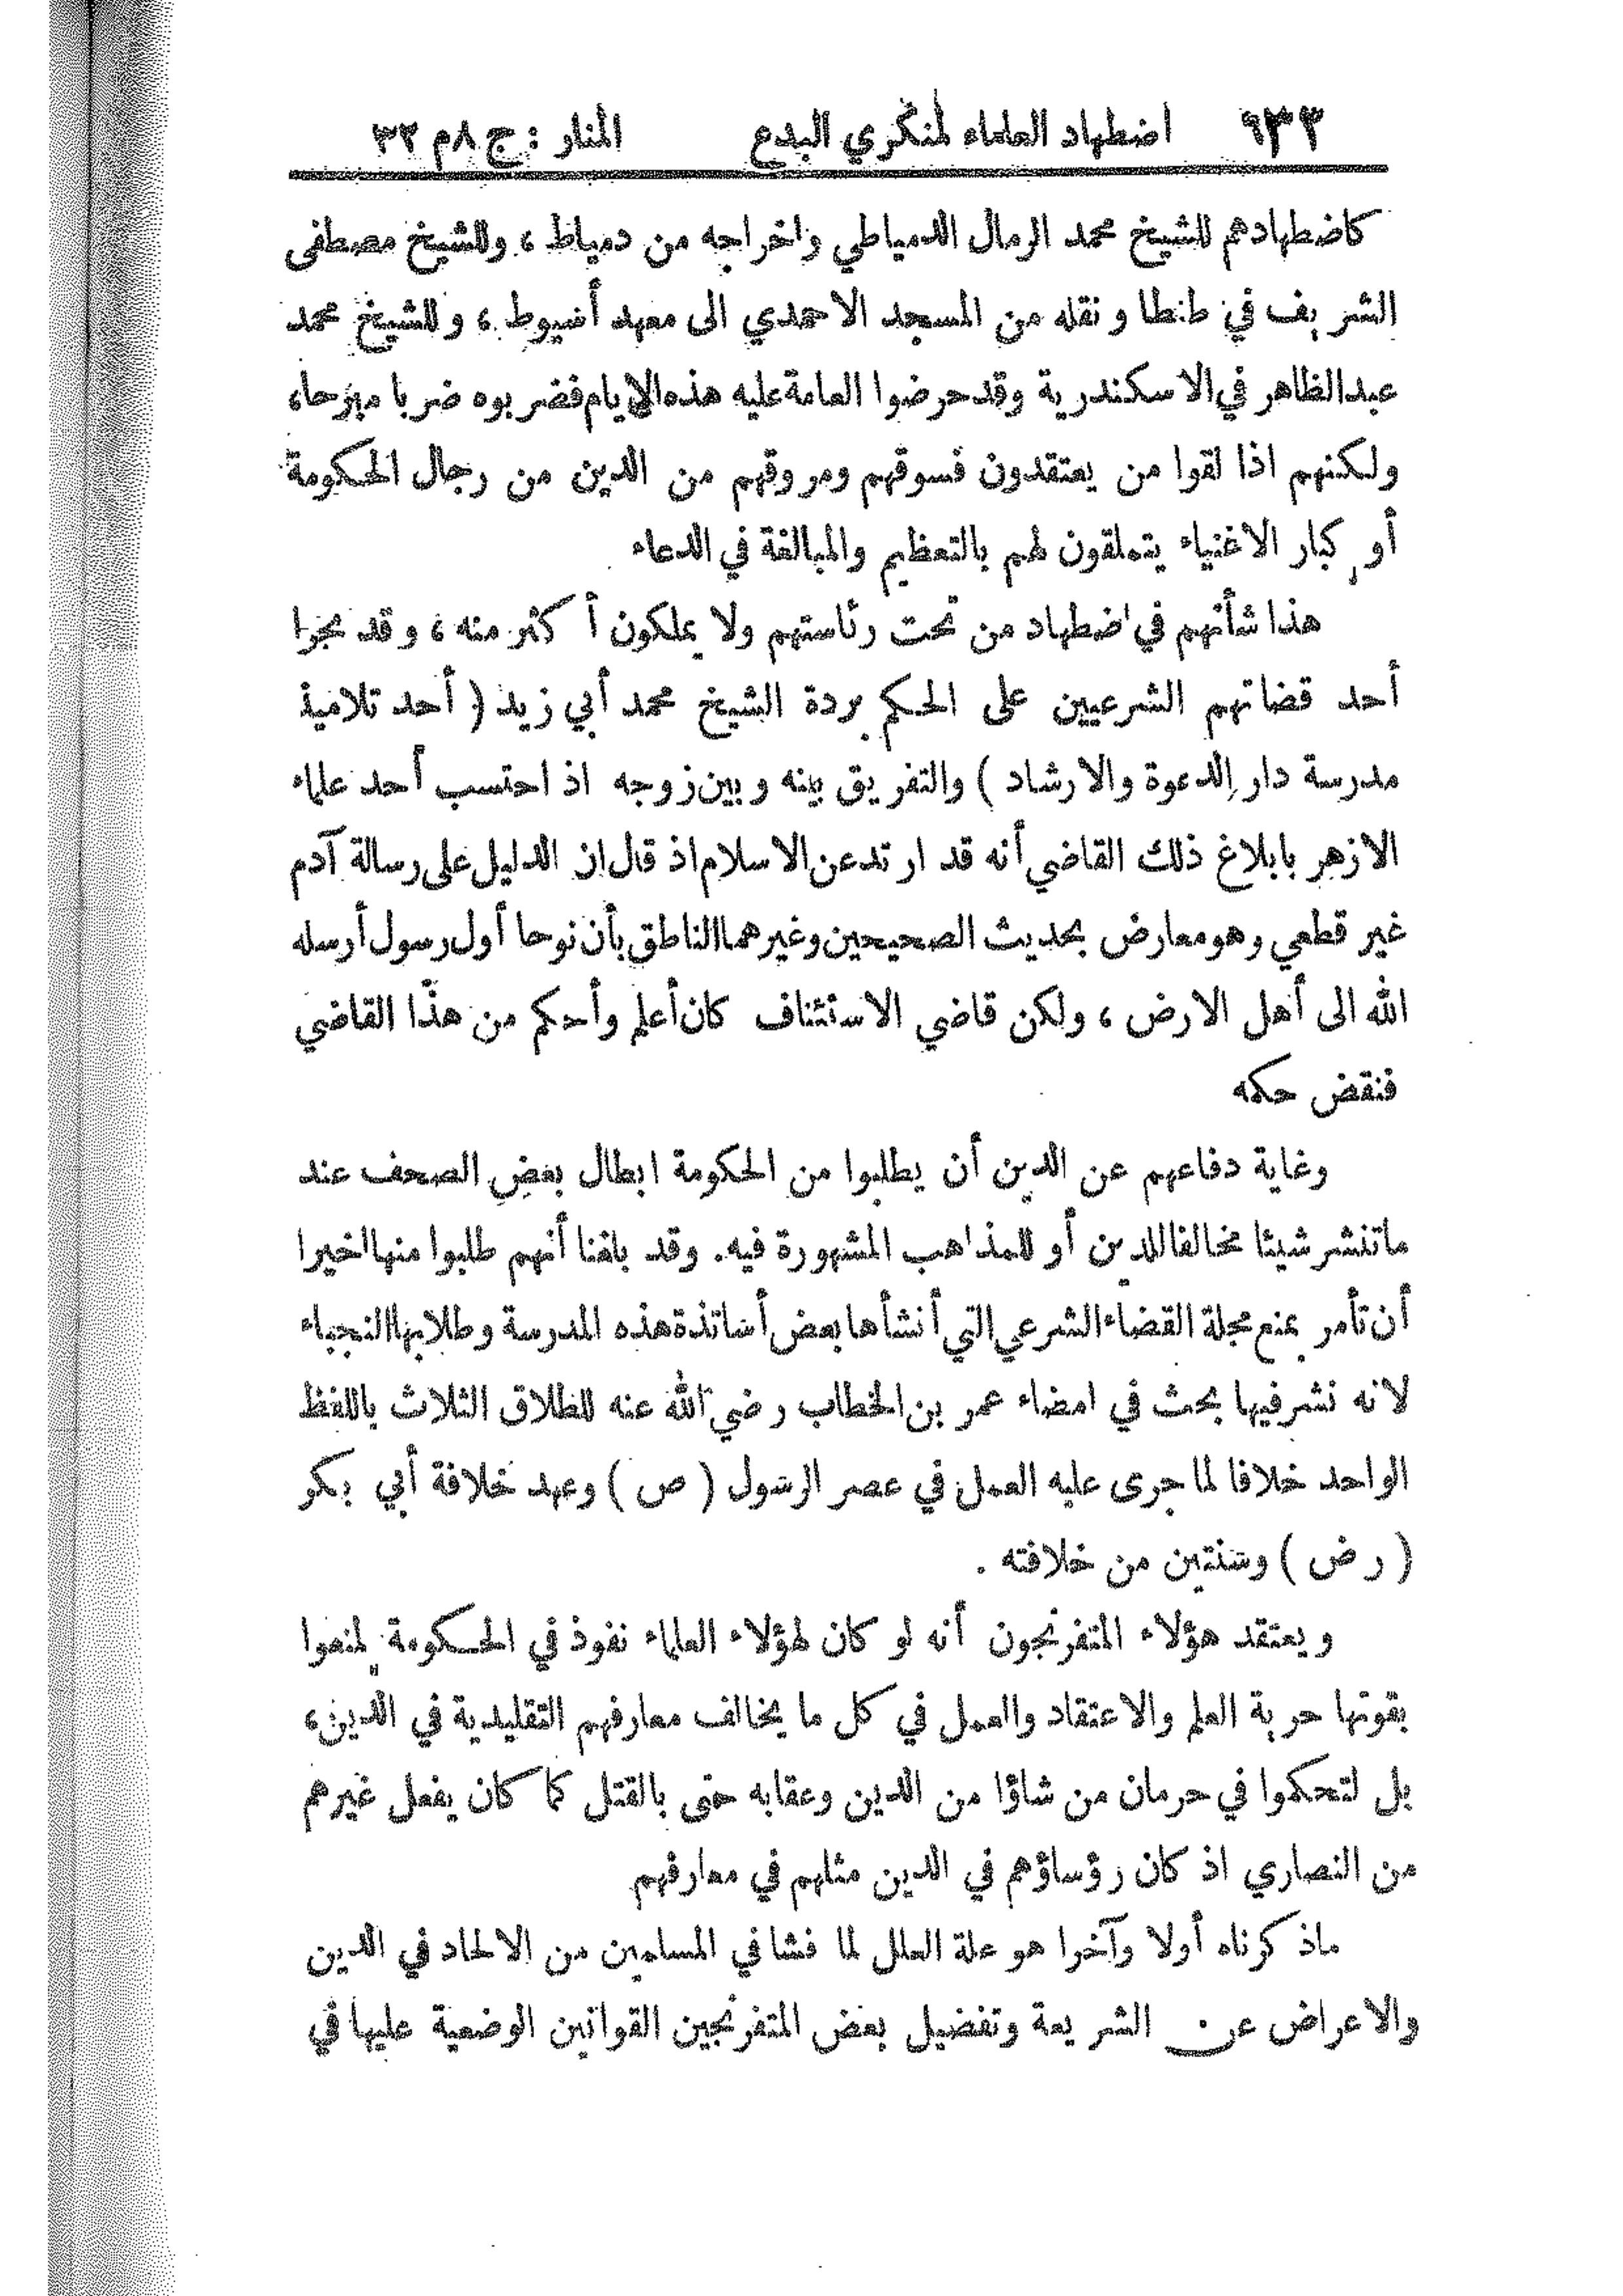 ٩٣٣ اضطهاد العلماء لمنكري البدع المنار : ج ٨ م ٣٢
كاضطهادهم للشيخ محمد الرمال الدمياطي واخراجه من دمياط ، وللشيخ مصطفى
الشريف في طنطا ونقله من المسجد الاحمدي الى معهد أسيوط ، وللشيخ محمد
عبدالظاهر في الاسكندرية وقد حرضوا العامة عليه هذه الايام فضربوه ضربا مبرحا ،
ولكنهم اذا لقوا من يعتقدون فسوقهم ومروقهم من الدين من رجال الحكومة
أو كبار الاغنياء يتملقون لهم بالتعظيم والمبالغة في الدعاء
هذا شأنهم في اضطهاد من تحت رئاستهم ولا يملكون أكثر منه ، وقد بجرا
أحد قضاتهم الشرعيين على الحكم بردة الشيخ محمد أبي زيد ( أحد تلاميذ
مدرسة دار الدعوة والارشاد ) والتفريق بينه وبين زوجه اذ احتسب أحد علماء
الازهر بابلاغ ذلك القاضي أنه قد ارتد عن الاسلام اذ قال ان الدليل على رسالة آدم
غير قطعي وهو معارض بحديث الصحيحين وغيرهما الناطق بأن نوحا أول رسول أرسله
الله الى أهل الارض ، ولكن قاضي الاستئناف كان أعلم وأحكم من هذا القاضي
فنقض حكمه
وغاية دفاعهم عن الدين أن يطلبوا من الحكومة ابطال بعض الصحف عند
ما تنشر شيئا مخالفا للدين أو للمذاهب المشهورة فيه. وقد بلغنا أنهم طلبوا منها اخيرا
أن تأمر بمنع مجلة القضاء الشرعي التي أنشأها بعض أساتذة هذه المدرسة وطلابها النجباء
لانه نشر فيها بحث في امضاء عمر بن الخطاب رضي الله عنه للطلاق الثلاث باللفظ
الواحد خلافا لما جرى عليه العمل في عصر الرسول ( ص ) وعهد خلافة أبي بكر
( رض ) وسنتين من خلافته .
ويعتقد هؤلاء المتفرنجون أنه لو كان لهؤلاء العلماء نفوذ في الحكومة لمنعوا
بقوتها حرية العلم والاعتقاد والعمل في كل ما يخالف معارفهم التقليدية في الدين ،
بل لتحكموا في حرمان من شاؤا من الدين وعقابه حتى بالقتل كما كان يفعل غيرهم
من النصارى اذ كان رؤساؤهم في الدين مثلهم في معارفهم
ماذكرناه أولا وآخرا هو علة العلل لما فشا في المسلمين من الالحاد في الدين
والاعراض عن الشريعة وتفضيل بعض المتفرنجين القوانين الوضعية عليها في